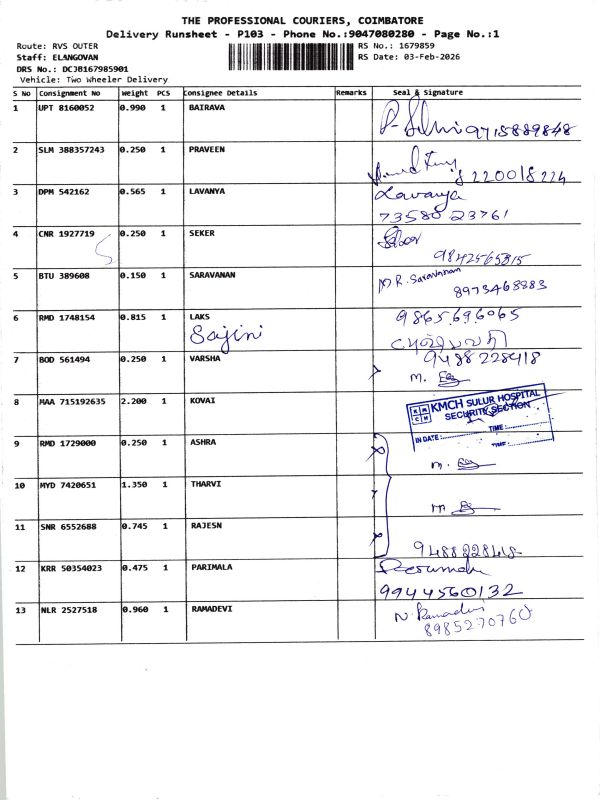 THE PROFESSIONAL COURIERS, COIMBATORE
Delivery Runsheet - P103 - Phone No.:9047080280 - Page No.:1
Route: RVS OUTER
RS No.: 1679859
Staff: ELANGOVAN
RS Date: 03-Feb-2026
DRS No.: DCJB167985901
Vehicle: Two Wheeler Delivery
S No Consignment No Weight PCS Consignee Details Remarks Seal & Signature
1 UPT 8160052 0.990 1 BAIRAVA
9715889848
2 SLM 388357243 0.250 1 PRAVEEN
3 DPM 542162 0.565 1 LAVANYA Lavanya
73580 23761
4 CNR 1927719 0.250 1 SEKER
9842565815
5 BTU 389608 0.150 1 SARAVANAN R. Saravanan
8973468883
6 RMD 1748154 0.815 1 LAKS 9865696065
Sajini
7 BOD 561494 0.250 1 VARSHA 9488228418
M.
8 MAA 715192635 2.200 1 KOVAI
KMCH SULUR HOSPITAL
SECURITY SECTION
IN DATE: TIME:
TIME:
9 RMD 1729000 0.250 1 ASHRA
m.
10 MYD 7420651 1.350 1 THARVI
m
11 SNR 6552688 0.745 1 RAJESN
9488228418
12 KRR 50354023 0.475 1 PARIMALA
9944560132
13 NLR 2527518 0.960 1 RAMADEVI N. Ramadevi
8985270760